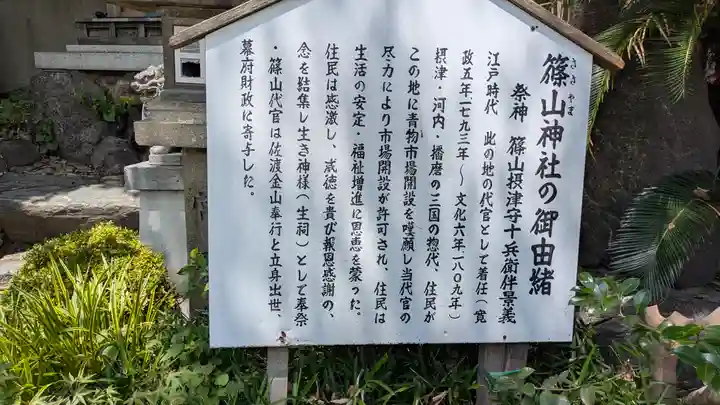 篠山神社の御由緒
ささやま
祭神 篠山摂津守十兵衛伴景義
江戸時代 此の地の代官として着任（寛
政五年一七九三年〜文化六年一八〇九年）
摂津・河内・播磨の三国の惣代、住民が
この地に青物市場開設を嘆願し当代官の
尽力により市場開設が許可され、住民は
生活の安定・福祉増進に恩恵を蒙った。
住民は感激し、威徳を貴び報恩感謝の、
念を結集し生き神様（生祠）として奉祭
・篠山代官は佐渡金山奉行と立身出世、
幕府財政に寄与した。